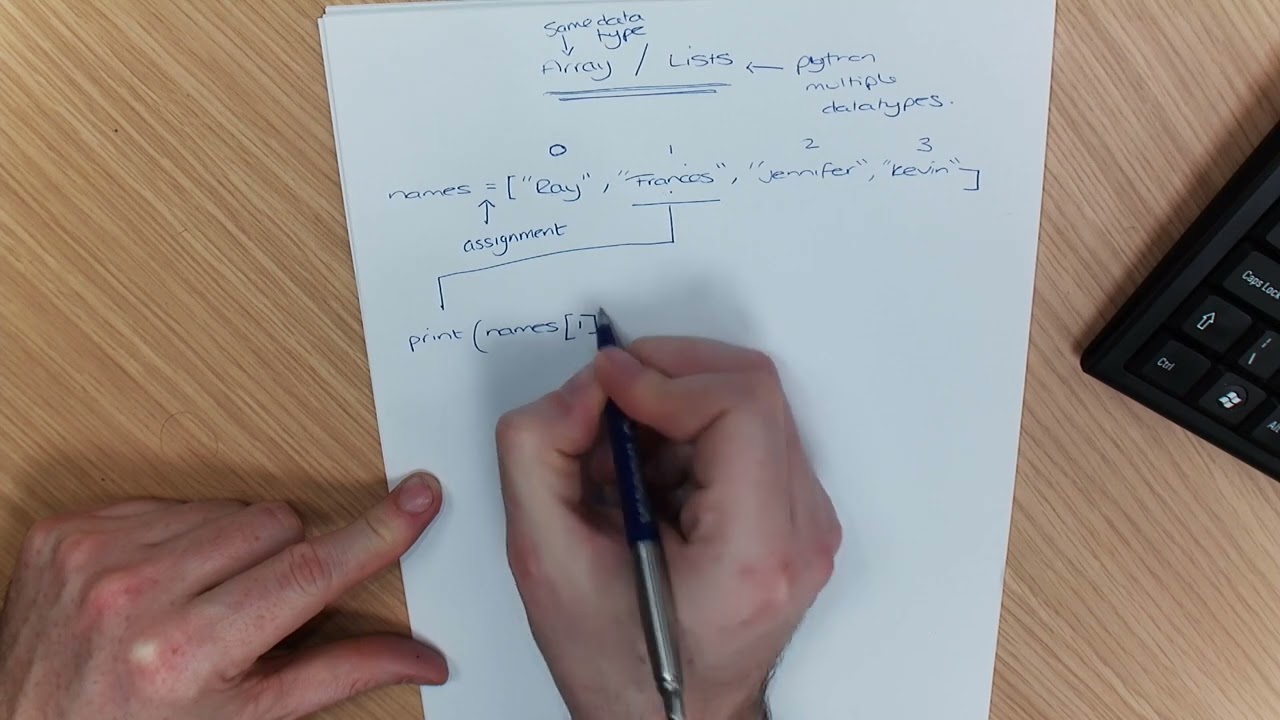 Same data
type
Array / Lists ← python
multiple
datatypes.
0 1 2 3
names = ["Ray", "Frances", "Jennifer", "Kevin"]
assignment
print (names[1]
Caps Lock
Ctrl
Alt